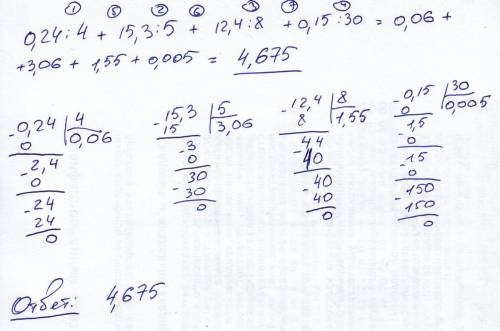 ① ⑤ ② ⑥ ③ ⑦ ④
0,24:4 + 15,3:5 + 12,4:8 + 0,15:30 = 0,06 +
+3,06 + 1,55 + 0,005 = 4,675
-0,24 | 4
0 | 0,06
-2,4
0
-24
24
0
-15,3 | 5
15 | 3,06
-3
0
30
-30
0
-12,4 | 8
8 | 1,55
-44
40
-40
40
0
-0,15 | 30
0 | 0,005
-1,5
0
-15
0
-150
150
0
Ответ: 4,675